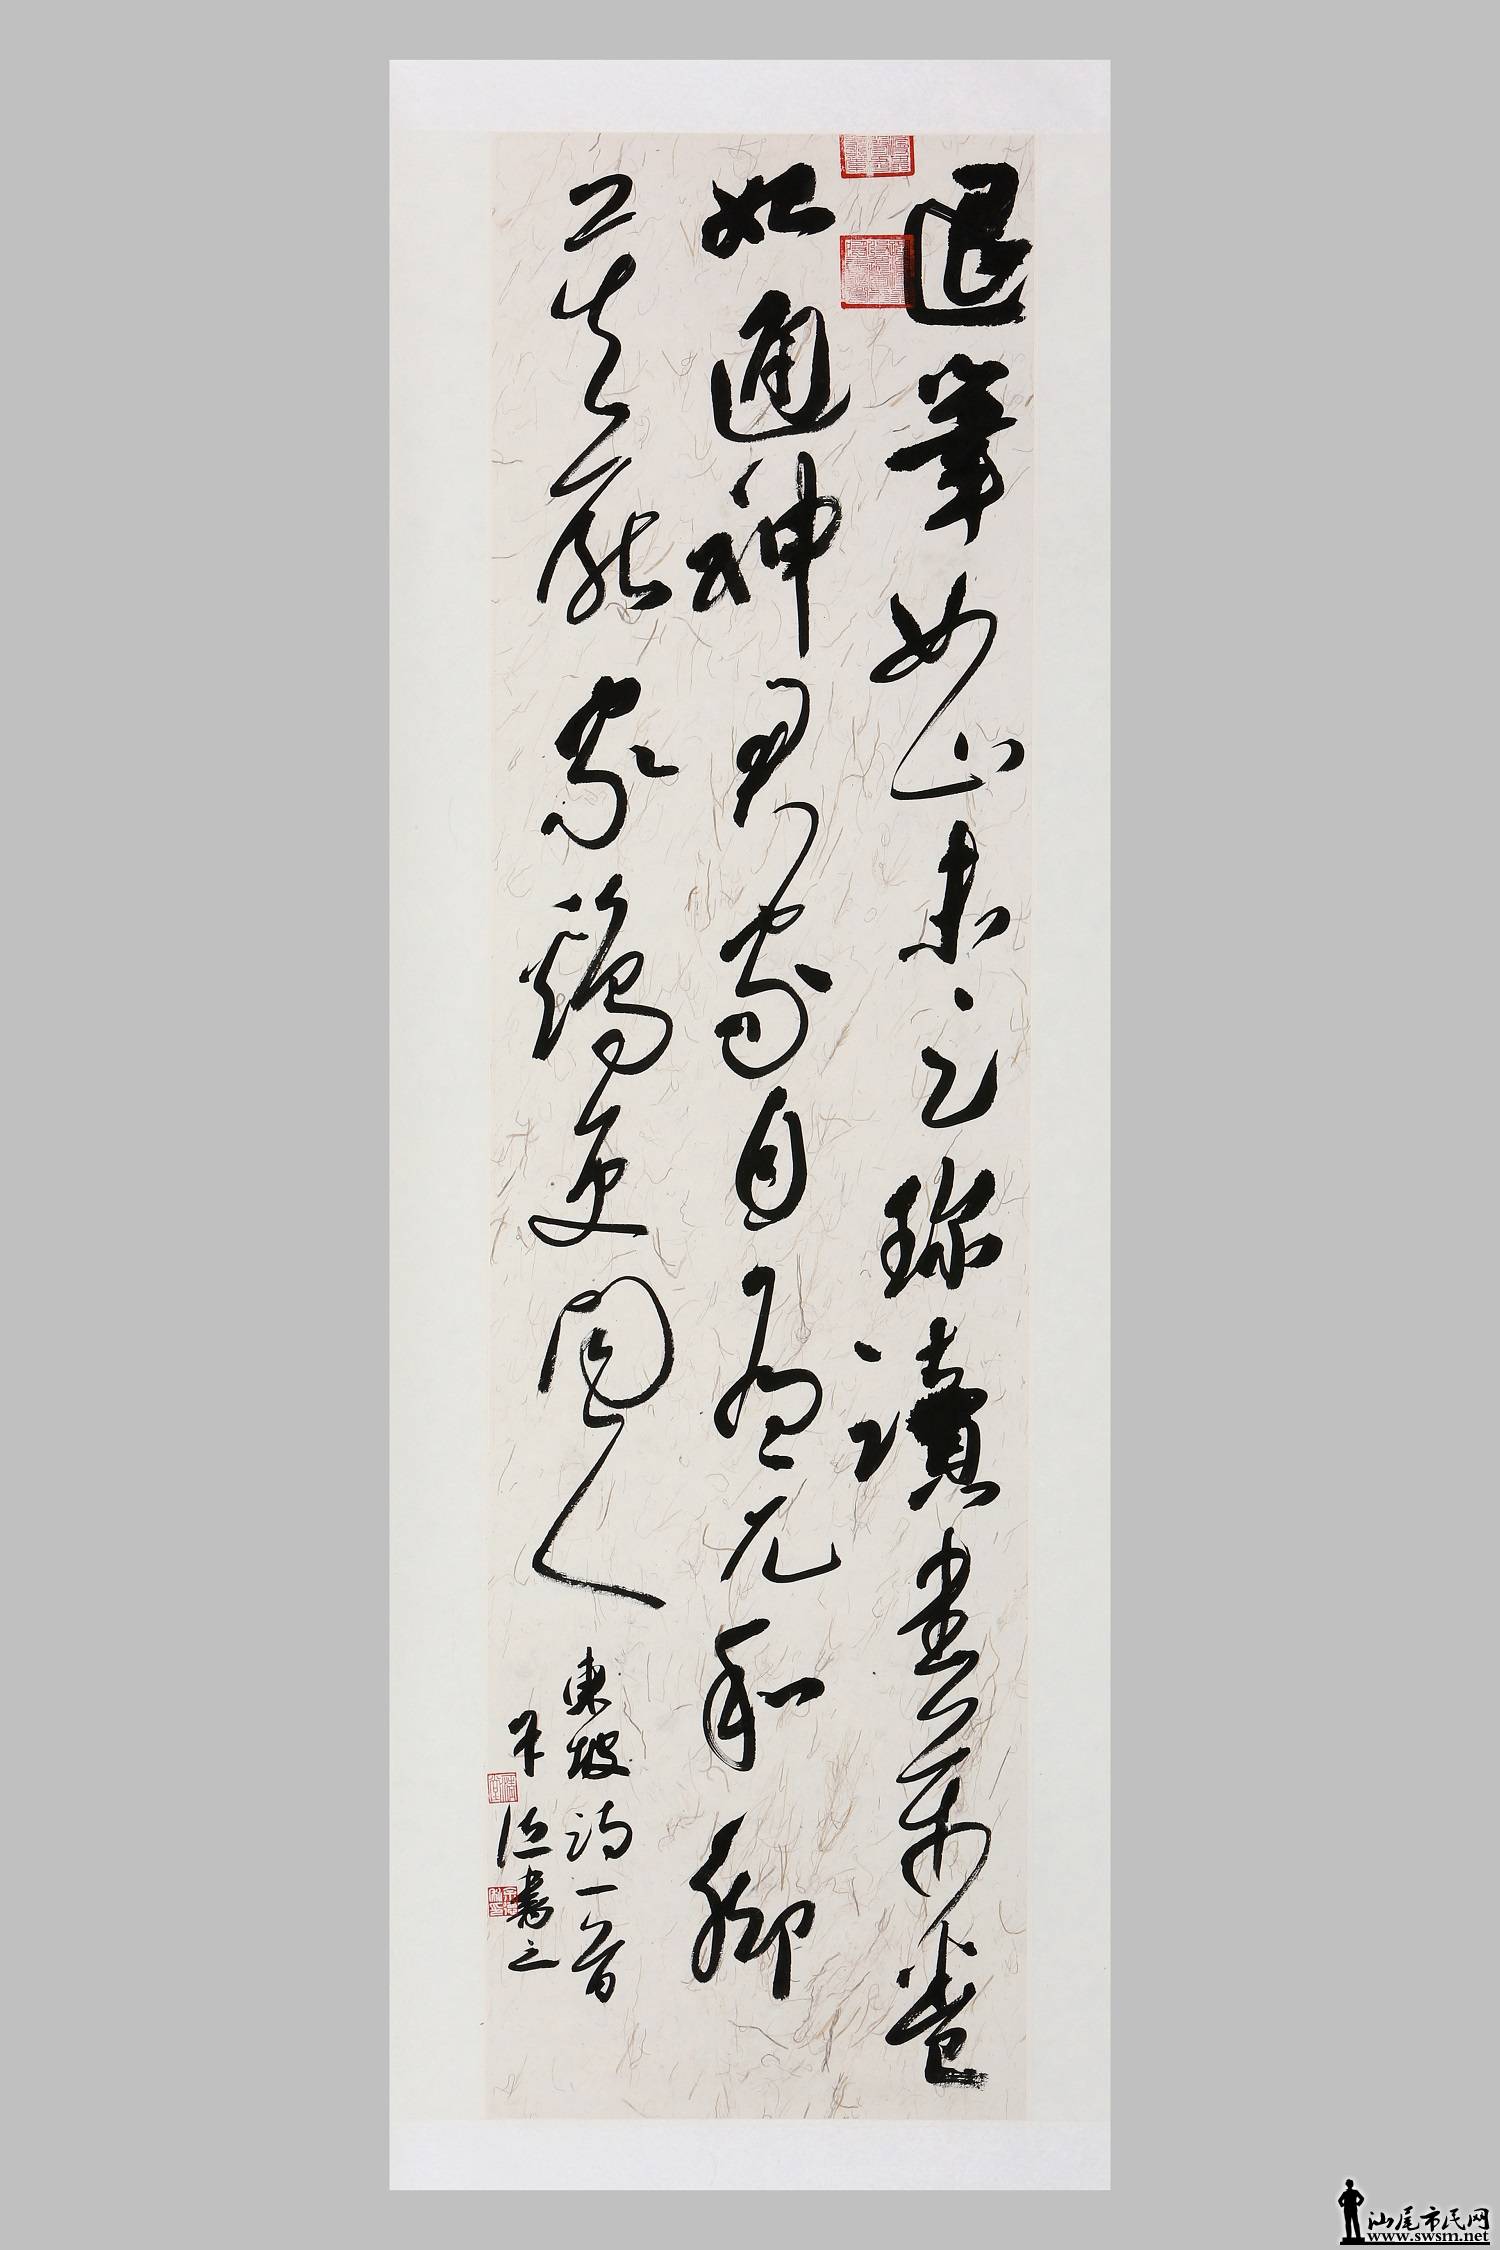 退筆如山未足珍讀書萬卷
始通神君家自有元和脚
莫厭家鷄更問人
東坡詩一首
書之
汕尾市民网
www.swsm.net